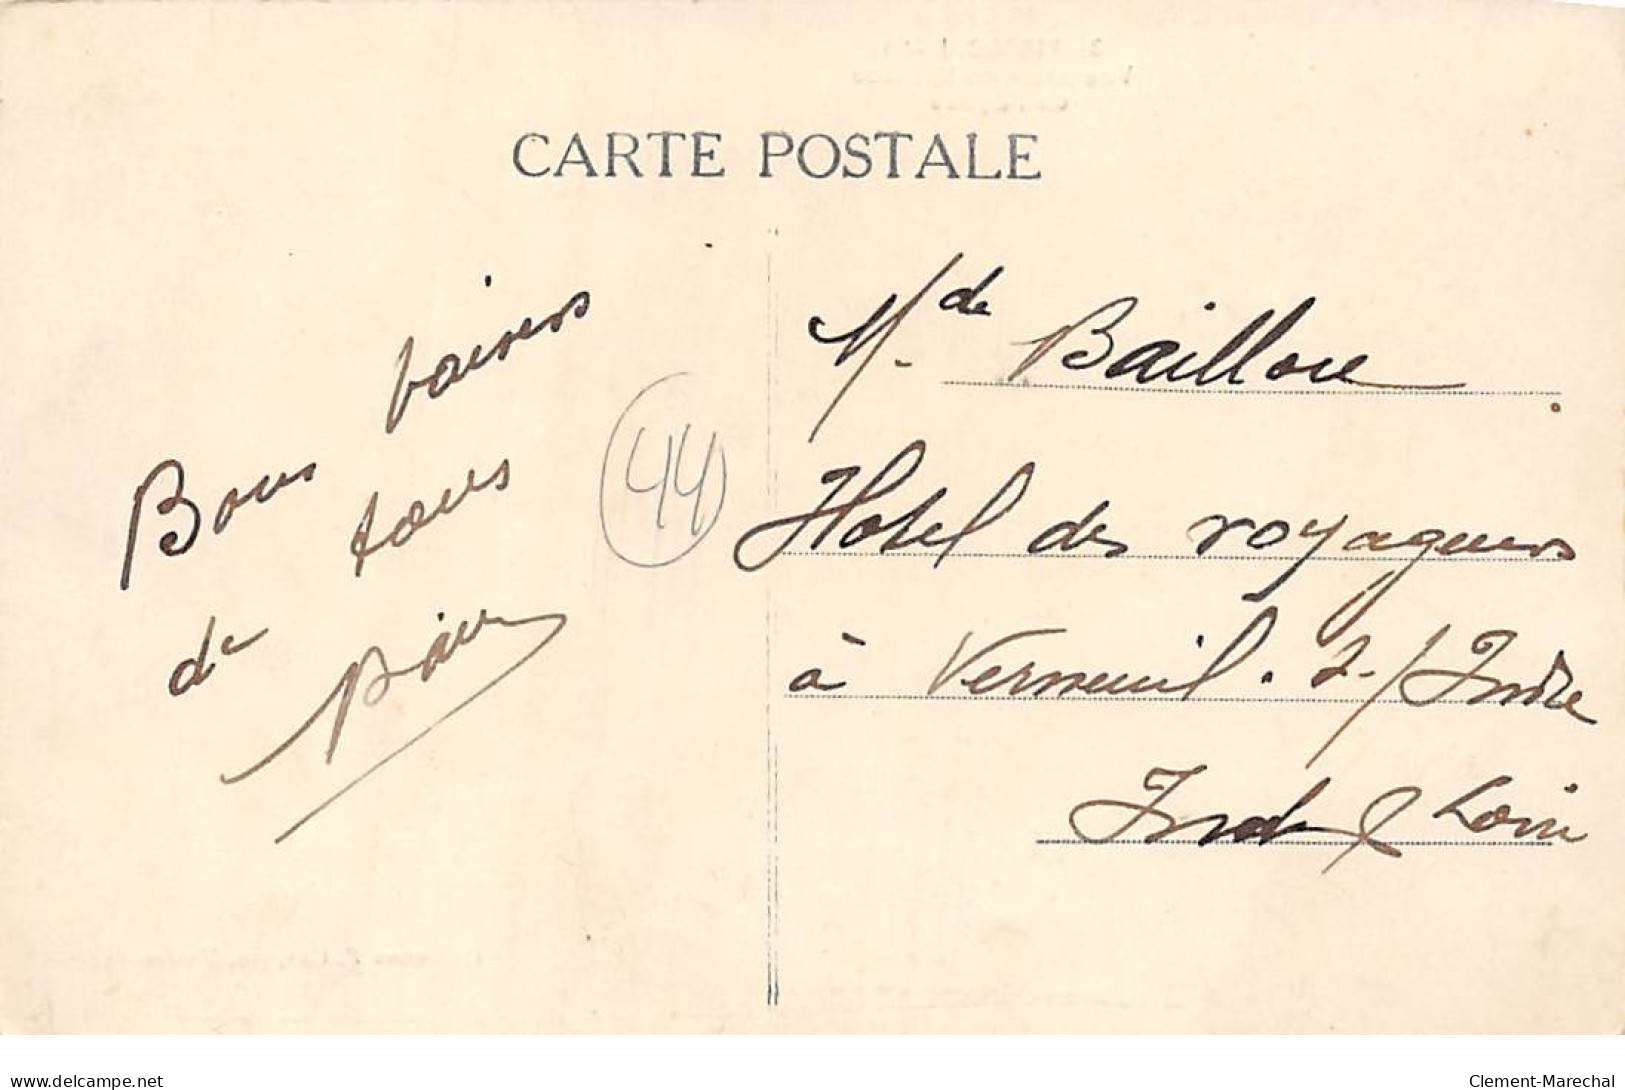 CARTE POSTALE
Bons baisers
de tous
44
Mde Baillou
Hotel des voyageurs
à Verneuil. s./Indre
Indre & Loire
delcampe.net
Clement-Marechal